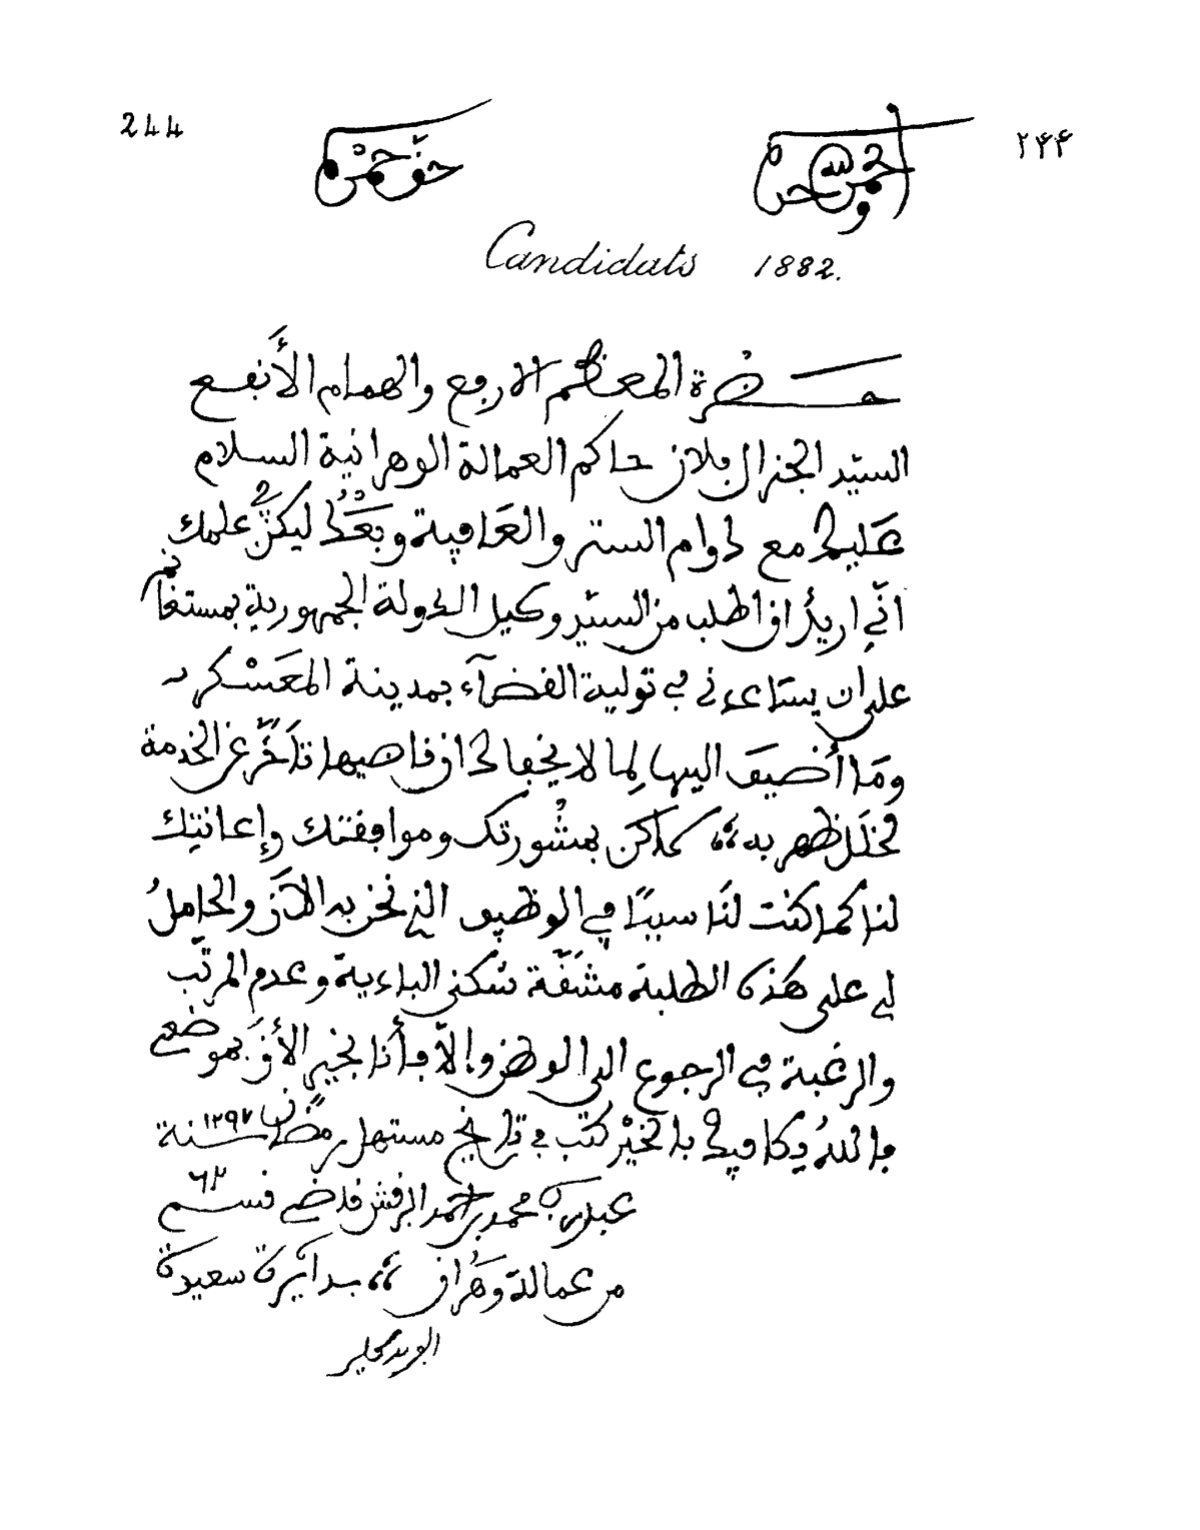 244
٢٤٤
Candidats 1882.
حضرة المعظم الارفع والهمام الأنفع
السيّد الجنرال بلان حاكم العمالة الوهرانية السلام
عَليك مع دوام الستر والعَافية وبَعْدُ ليكن في علمك
انّي اريدُ ان اطلب من السيّد وكيل الدولة الجمهورية بمستغانم
على ان يساعدني في تولية القضآء بمدينة المعَسْكر
ومَا أضيفَ اليها لِما لا يخفاك ان قاضيها تأخّر عن الخدمة
لخلَل ظهر به كما كن بمشُورتك وموافقتك وإعانتك
لنا كما كنت لنَا سببًا في الوظيف الذي نحن به الآن والحاملُ
لي على هذه الطلبة مشَقّة سُكنى البادية وعدم المرتّب
والرغبة في الرجوع الى الوطن وإلاّ فأنا بخير الأنَ بموضعي
واللهُ يكافيك بالخيْر كتب في تاريخ مستهل رمضان سنة ١٢٩٧
عبد ربه محمد بن احمد قاضي قسم ٦٣
من عمالة وَهْران بدائرة سعيدة